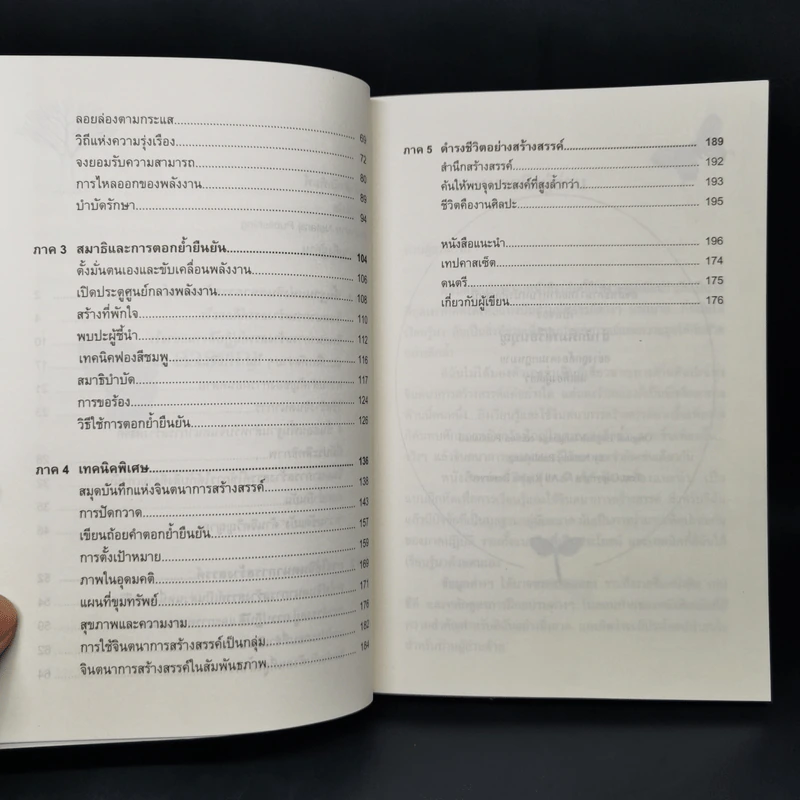 ลอยล่องตามกระแส 69
วิถีแห่งความรุ่งเรือง 72
จงยอมรับความสามารถ 80
การไหลออกของพลังงาน 89
บำบัดรักษา 94
ภาค 3 สมาธิและการตอกย้ำยืนยัน 104
ตั้งมั่นตนเองและขับเคลื่อนพลังงาน 106
เปิดประตูศูนย์กลางพลังงาน 108
สร้างที่พักใจ 110
พบปะผู้ชี้นำ 112
เทคนิคฟองสีชมพู 116
สมาธิบำบัด 117
การขอร้อง 124
วิธีใช้การตอกย้ำยืนยัน 126
ภาค 4 เทคนิคพิเศษ 136
สมุดบันทึกแห่งจินตนาการสร้างสรรค์ 138
การปัดกวาด 143
เขียนถ้อยคำตอกย้ำยืนยัน 157
การตั้งเป้าหมาย 159
ภาพในอุดมคติ 169
แผนที่ขุมทรัพย์ 171
สุขภาพและความงาม 176
การใช้จินตนาการสร้างสรรค์เป็นกลุ่ม 182
จินตนาการสร้างสรรค์ในสัมพันธภาพ 184
ภาค 5 ดำรงชีวิตอย่างสร้างสรรค์ 189
สำนึกสร้างสรรค์ 192
ค้นให้พบจุดประสงค์ที่สูงล้ำกว่า 193
ชีวิตคืองานศิลปะ 195
หนังสือแนะนำ 196
เทปคาสเซ็ต 174
ดนตรี 175
เกี่ยวกับผู้เขียน 176